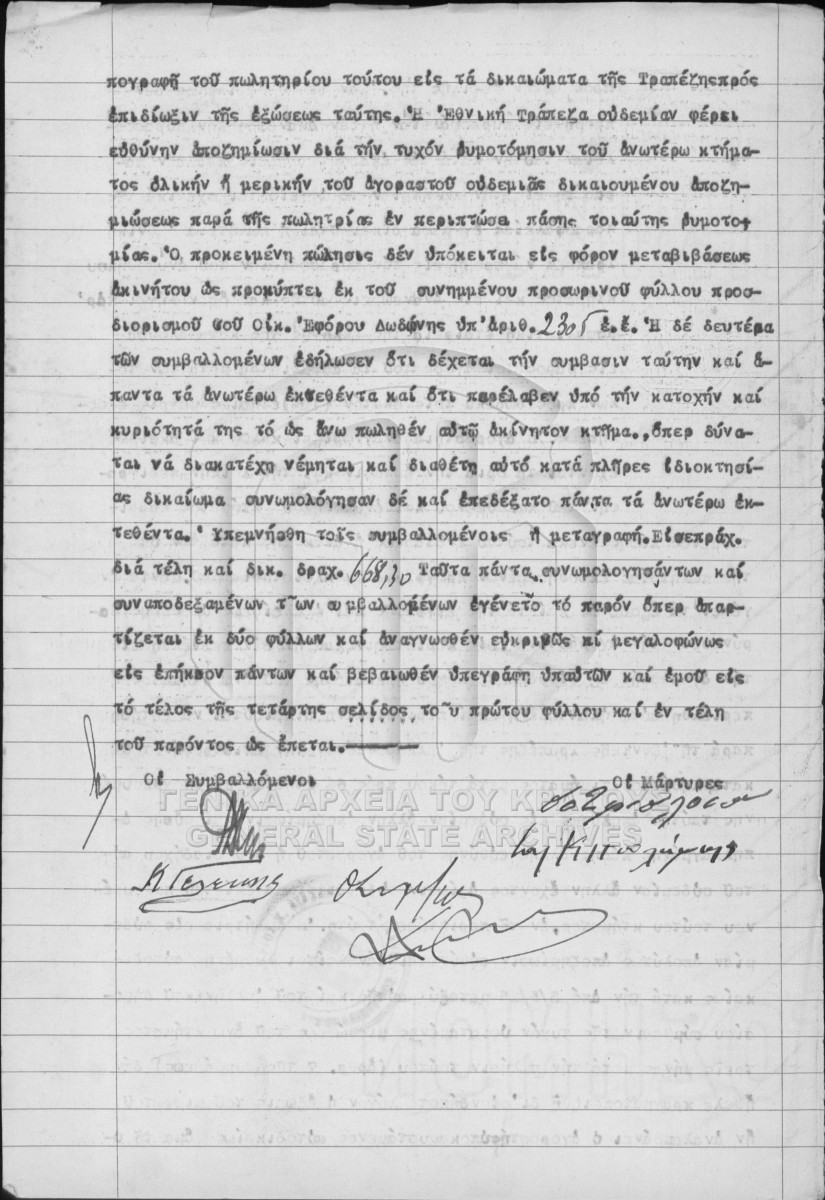 πογραφῇ τοῦ πωλητηρίου τούτου εἰς τά δικαιώματα τῆς Τραπέζηςπρός
ἐπιδίωξιν τῆς ἐξώσεως ταύτης. Ἡ Ἐθνική Τράπεζα οὐδεμίαν φέρει
εὐθύνην ἀποζημίωσιν διά τήν τυχόν ρυμοτόμησιν τοῦ ἀνωτέρω κτήμα-
τος ὁλικήν ἤ μερικήν τοῦ ἀγοραστοῦ οὐδεμιᾶς δικαιουμένου ἀποζη-
μιώσεως παρά τῆς πωλητρίας ἐν περιπτώσει πάσης τοιαύτης ρυμοτο-
μίας. Ὁ προκειμένη πώλησις δέν ὑπόκειται εἰς φόρον μεταβιβάσεως
ἀκινήτου ὡς προκύπτει ἐκ τοῦ συνημμένου προσωρινοῦ φύλλου προσ-
διορισμοῦ τοῦ Οἰκ. Ἐφόρου Δωδώνης ὑπ' ἀριθ. 2305 ἐ.ἔ. Ἡ δέ δευτέρα
τῶν συμβαλλομένων ἐδήλωσεν ὅτι δέχεται τήν συμβασιν ταύτην καί ἅ-
παντα τά ἀνωτέρω ἐκτεθέντα καί ὅτι παρέλαβεν ὑπό τήν κατοχήν καί
κυριότητά της τό ὡς ἄνω πωληθέν αὐτῷ ἀκίνητον κτῆμα., ὅπερ δύνα-
ται νά διακατέχῃ νέμηται καί διαθέτῃ αὐτό κατά πλῆρες ἰδιοκτησί-
ας δικαίωμα συνωμολόγησαν δέ καί ἐπεδέξατο πάντα τά ἀνωτέρω ἐκ-
τεθέντα. Ὑπεμνήσθη τοῖς συμβαλλομένοις ἡ μεταγραφή. Εἰσεπράχ.
διά τέλη καί δικ. δραχ. 668,30 Ταῦτα πάντα συνωμολογησάντων καί
συναποδεξαμένων τῶν συμβαλλομένων ἐγένετο τό παρόν ὅπερ ἀπαρ-
τίζεται ἐκ δύο φύλλων καί ἀναγνωσθέν εὐκρινῶς κί μεγαλοφώνως
εἰς ἐπήκοον πάντων καί βεβαιωθέν ὑπεγράφη ὑπαὐτῶν καί ἐμοῦ εἰς
τό τέλος τῆς τετάρτης σελίδος τοῦ πρώτου φύλλου καί ἐν τέλη
τοῦ παρόντος ὡς ἕπεται.
Οἱ Συμβαλλόμενοι Οἱ Μάρτυρες
ΓΕΝΙΚΑ ΑΡΧΕΙΑ ΤΟΥ ΚΡ
GENERAL STATE ARCHIVES